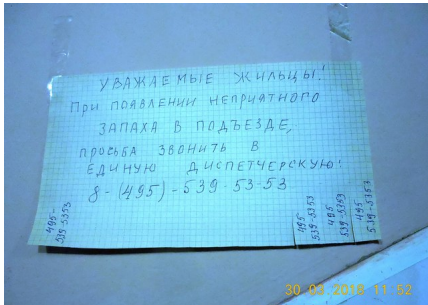 УВАЖАЕМЫЕ ЖИЛЬЦЫ!
ПРИ ПОЯВЛЕНИИ НЕПРИЯТНОГО
ЗАПАХА В ПОДЪЕЗДЕ,
ПРОСЬБА ЗВОНИТЬ В
ЕДИНУЮ ДИСПЕТЧЕРСКУЮ:
8-(495)-539-53-53
495-
539-5353
495
539-5353
495
539-5353
495
539-5353
30.03.2018 11:52